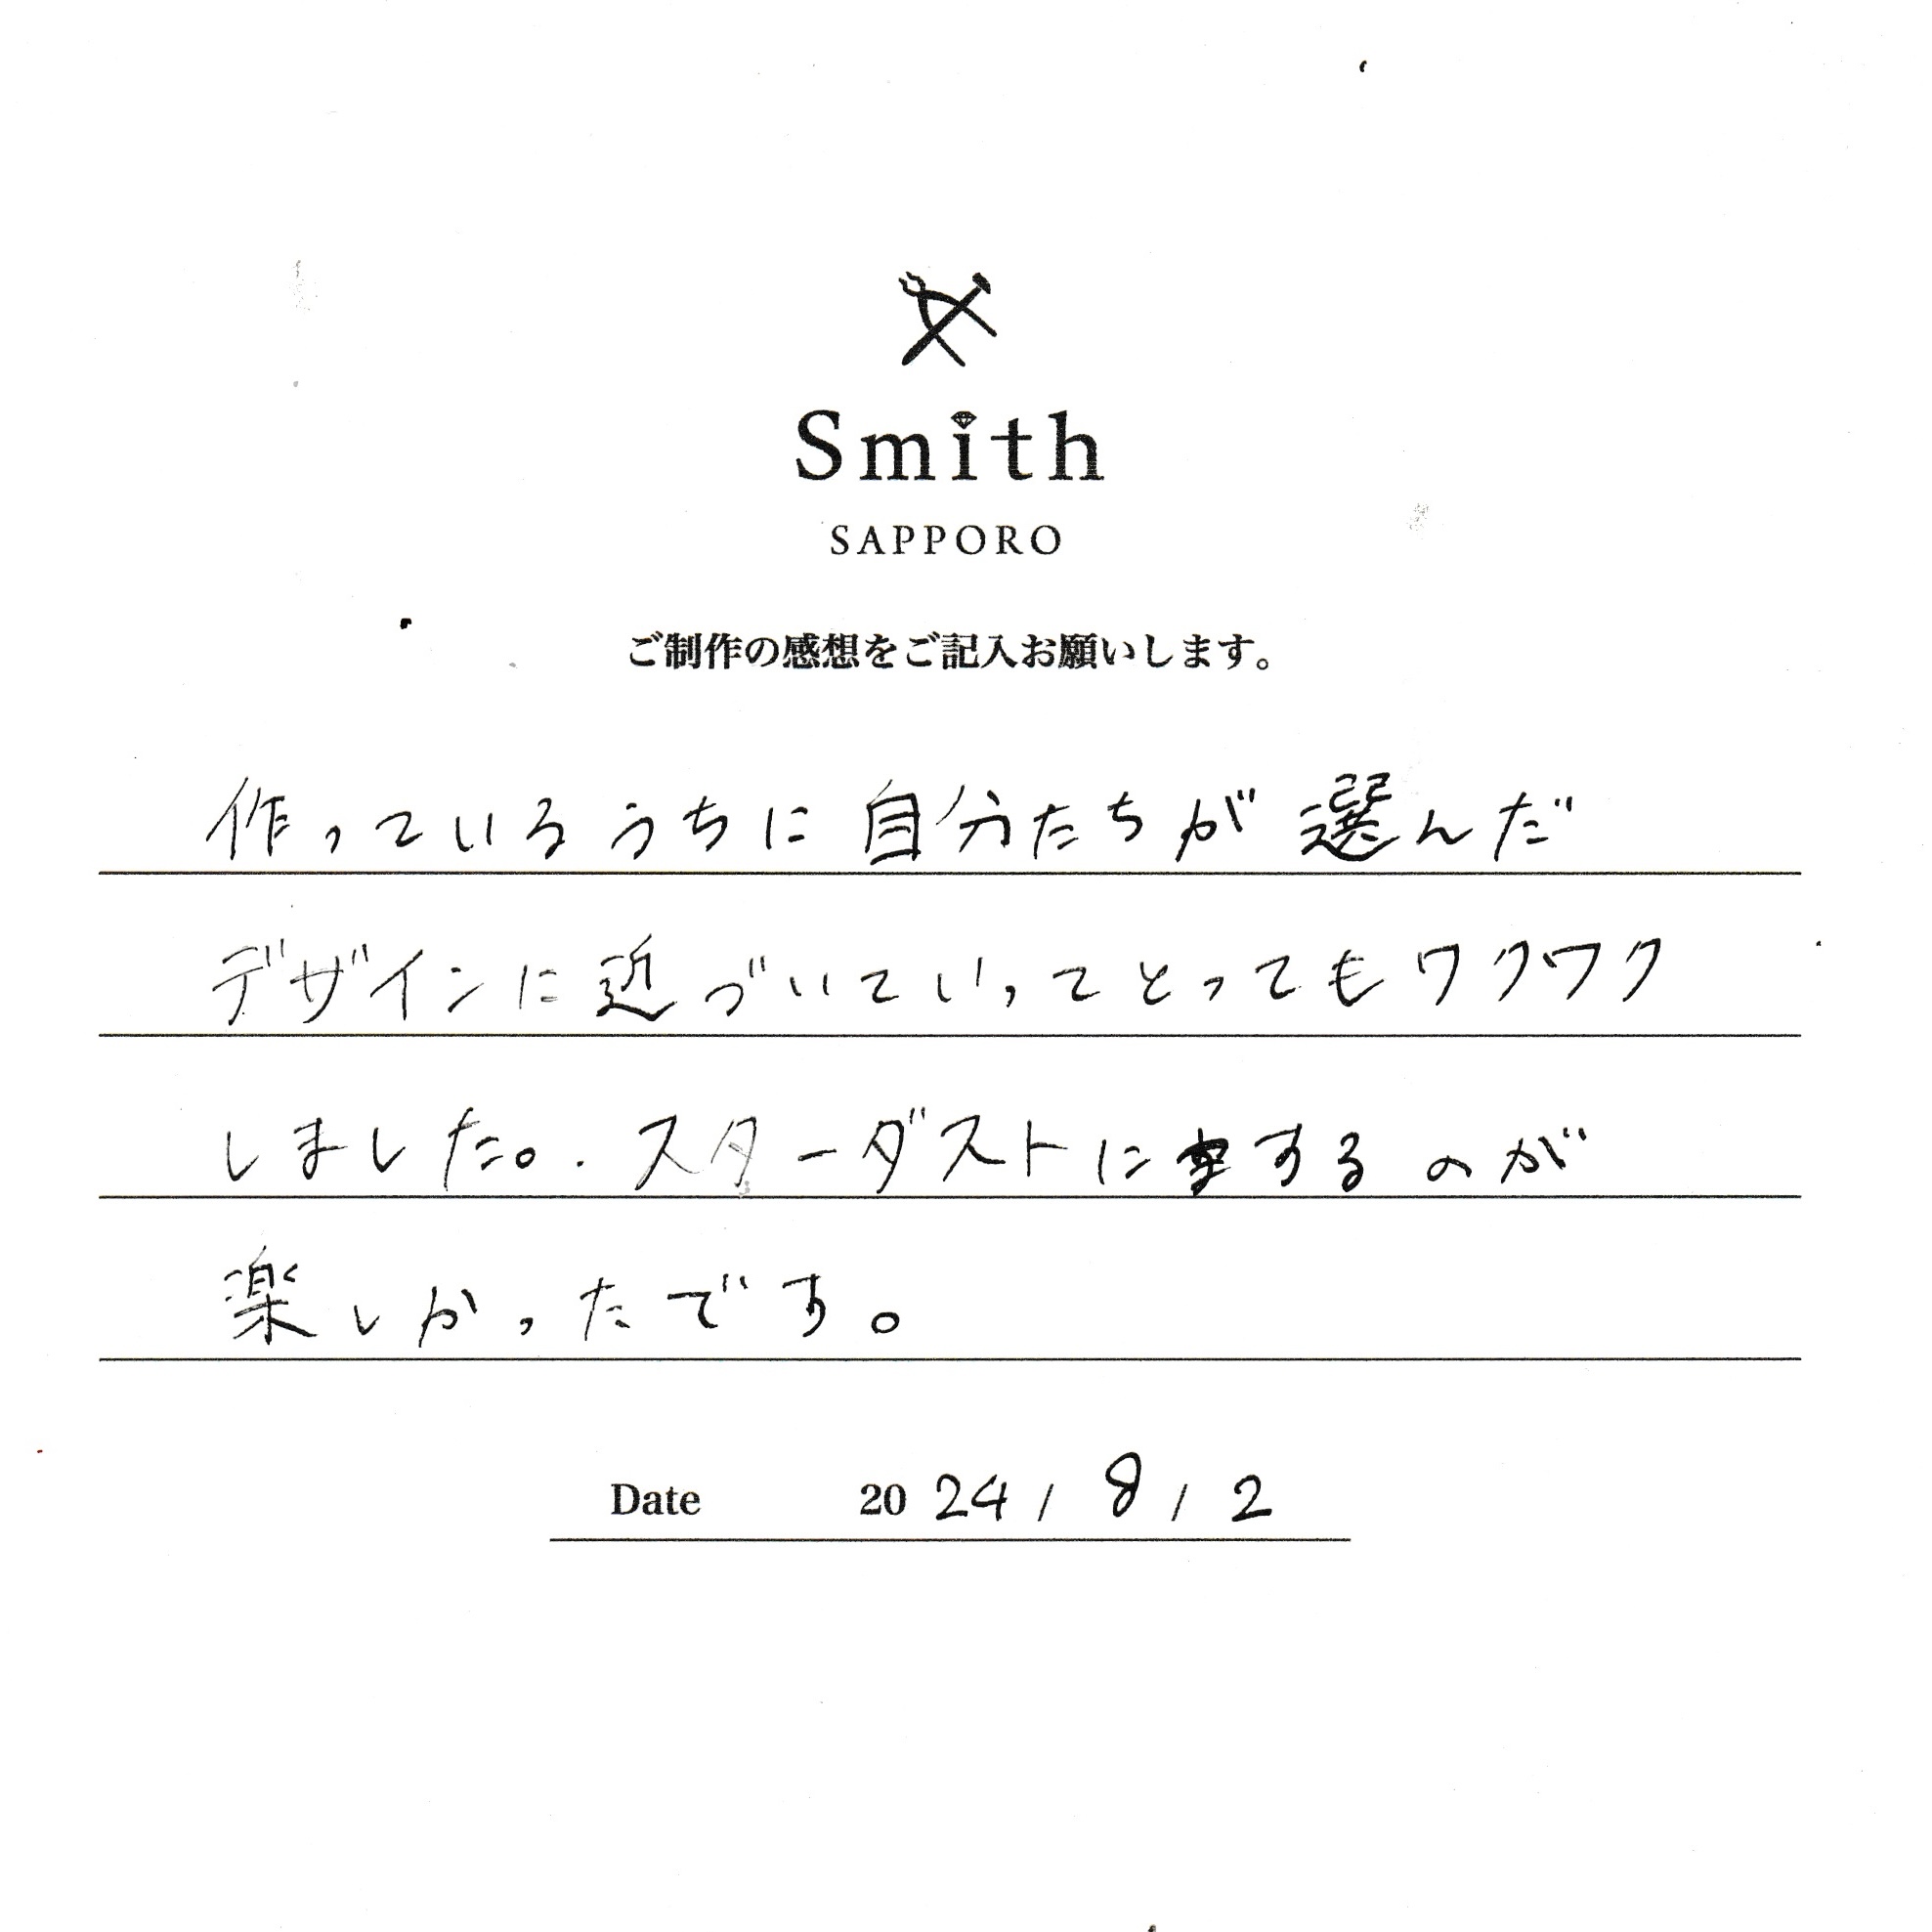 Smith
SAPPORO
ご制作の感想をご記入お願いします。
作っているうちに自分たちが選んだ
デザインに近づいていってとってもワクワク
しました。スターダストにするのが
楽しかったです。
Date 2024/8/2